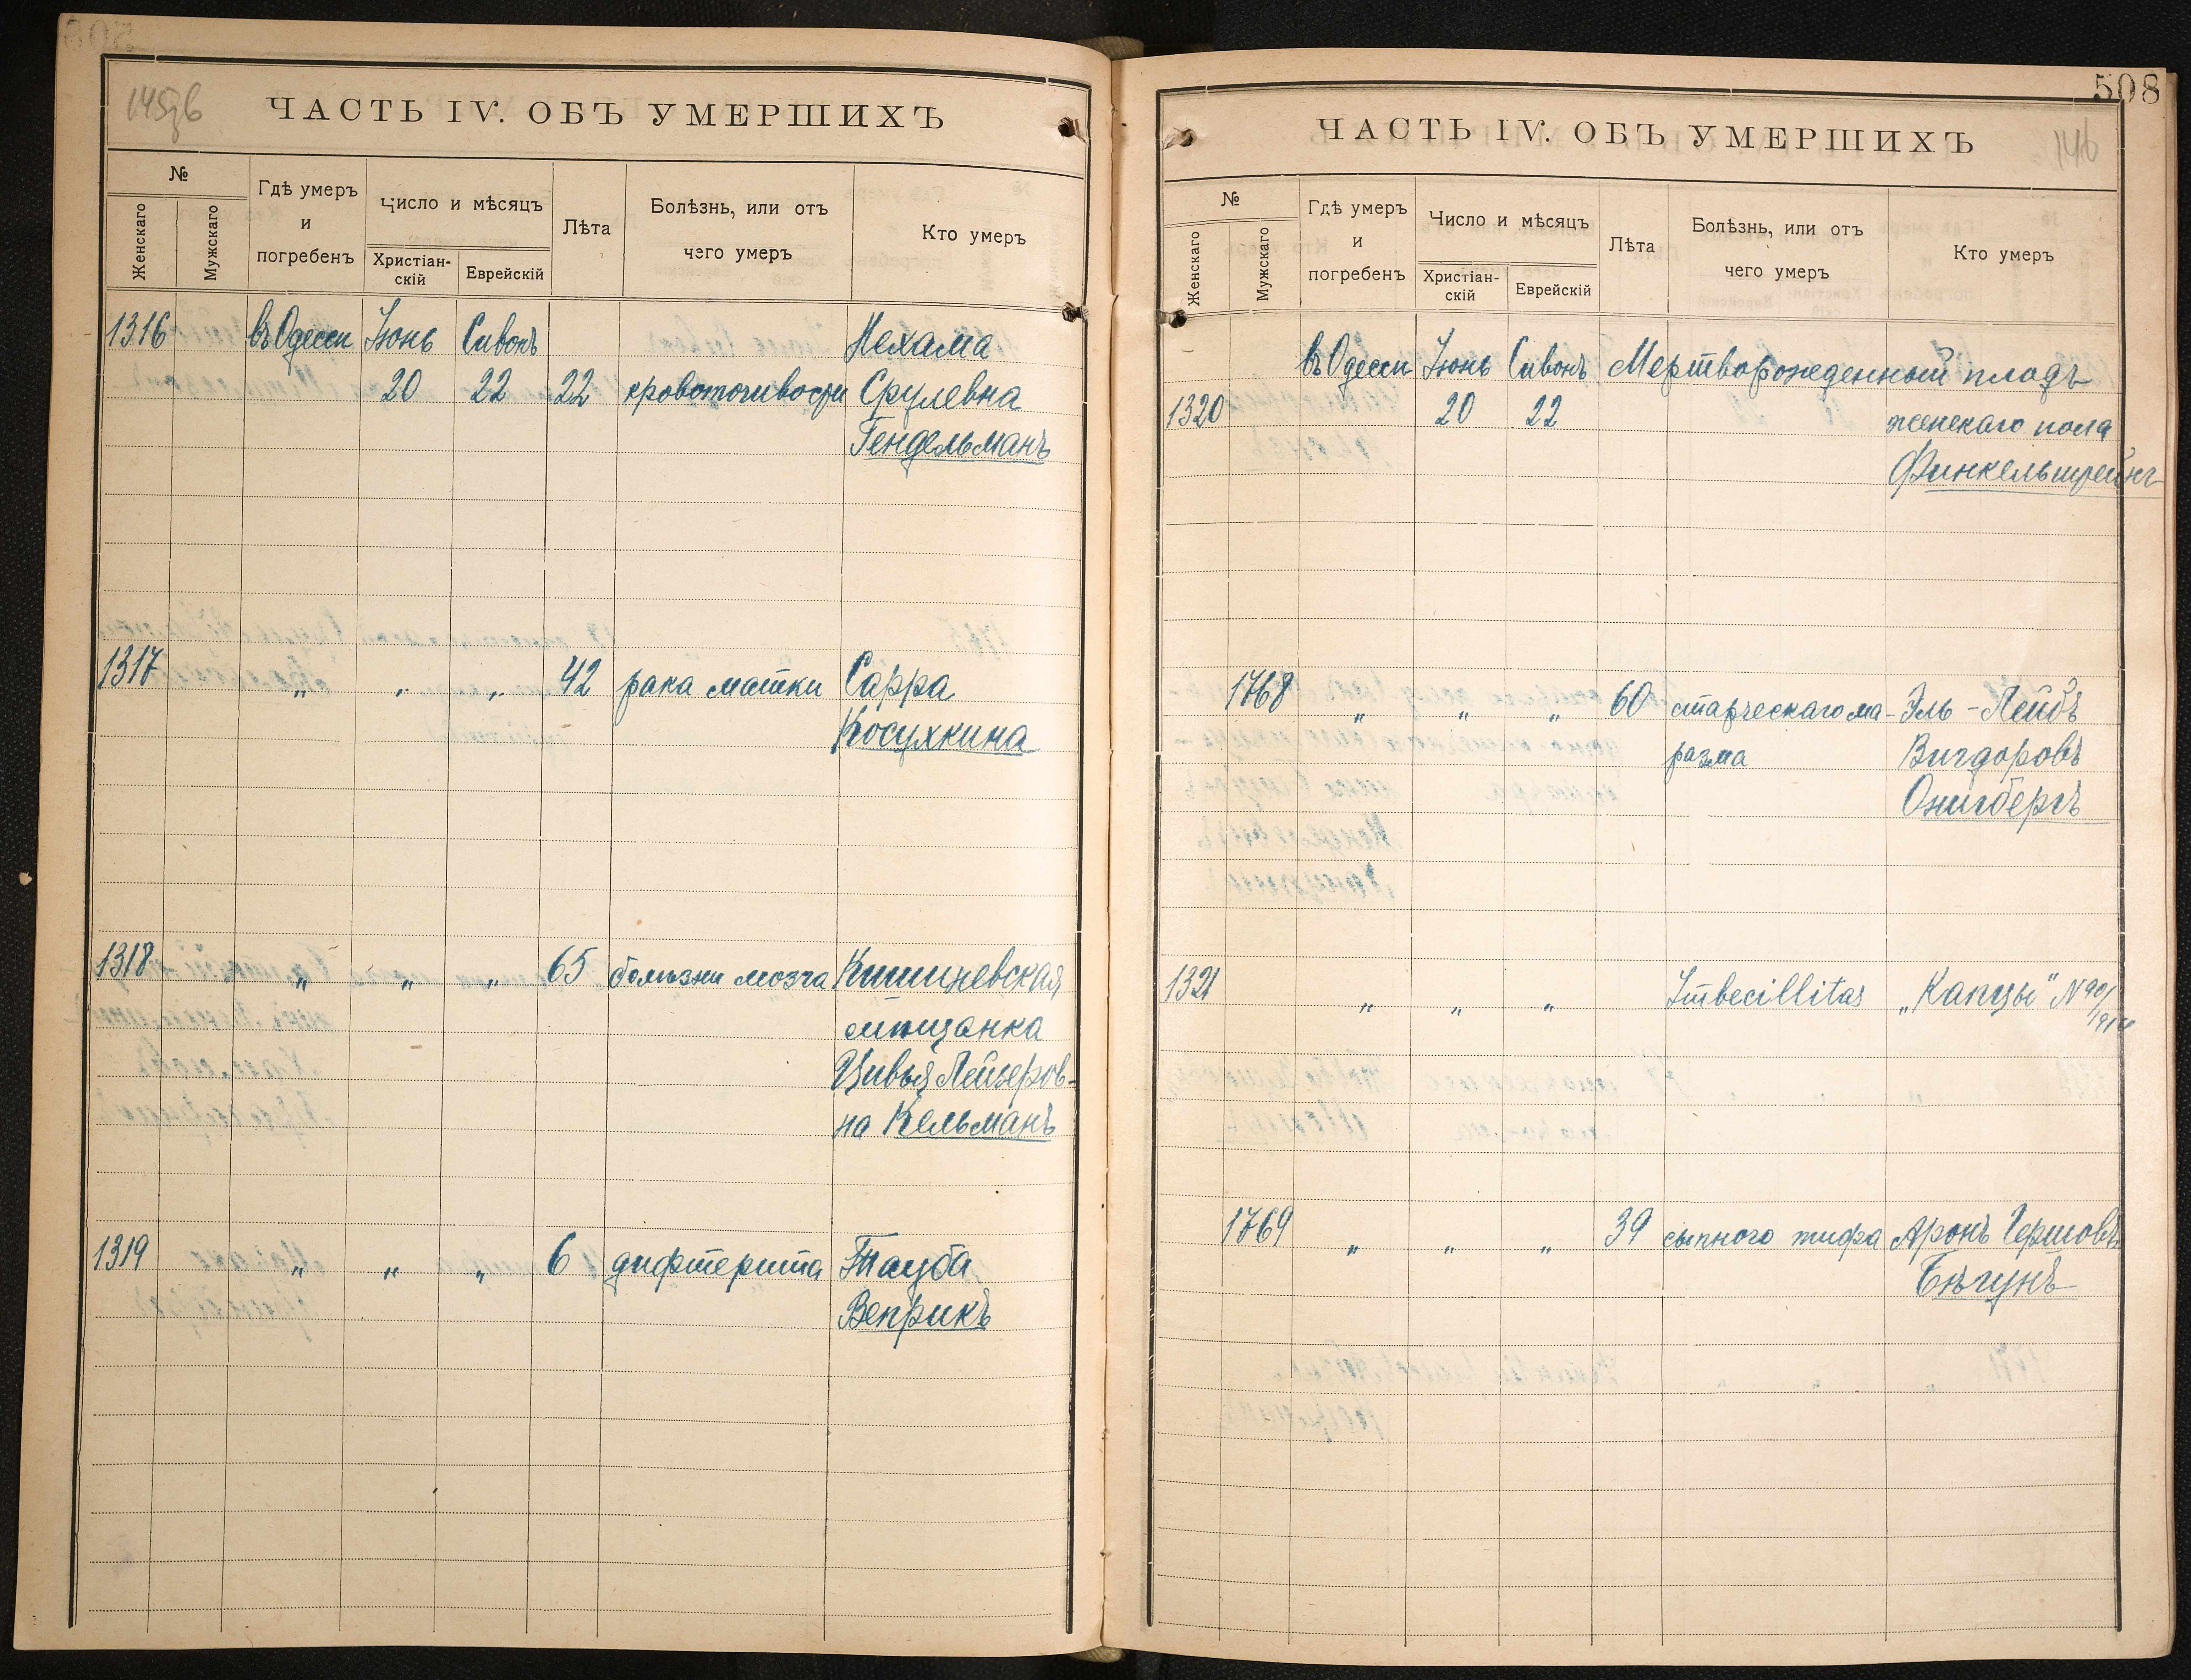 145об
ЧАСТЬ IV. ОБЪ УМЕРШИХЪ
№
Женскаго
Мужскаго
Гдѣ умеръ
и
погребенъ
Число и мѣсяцъ
Христіан-
скій
Еврейскій
Лѣта
Болѣзнь, или отъ
чего умеръ
Кто умеръ
1316 въ Одессѣ Іюнь Сивонъ Нехама
20 22 22 кровоточивости Срулевна
Гендельманъ
1317 „ „ „ 42 рака матки Сарра
Косухкина
1318 „ „ „ 65 болѣзни мозга Кишиневская
мѣщанка
Цивья Лейзеров-
на Кельманъ
1319 „ „ „ 6 дифтерита Тауба
Веприкъ
508
146
ЧАСТЬ IV. ОБЪ УМЕРШИХЪ
№
Женскаго
Мужскаго
Гдѣ умеръ
и
погребенъ
Число и мѣсяцъ
Христіан-
скій
Еврейскій
Лѣта
Болѣзнь, или отъ
чего умеръ
Кто умеръ
въ Одессѣ Іюнь Сивонъ Мертворожденный плодъ
1320 20 22 женскаго пола
Финкельштейнъ
1768 „ „ „ 60 старческаго ма- Эль-Лейбъ
разма Вигдоровъ
Онигбергъ
1321 „ „ „ Imbecillitas „Капцы" №
1769 „ „ „ 39 сыпного тифа Аронъ Гершовъ
Бѣгунъ